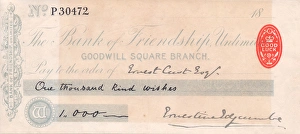 No P30472
18
The Bank of Friendship Unlimited
GOODWILL SQUARE BRANCH.
GOOD LUCK
Pay to the order of Ernest Cust Esqr.
One thousand kind wishes
1.000